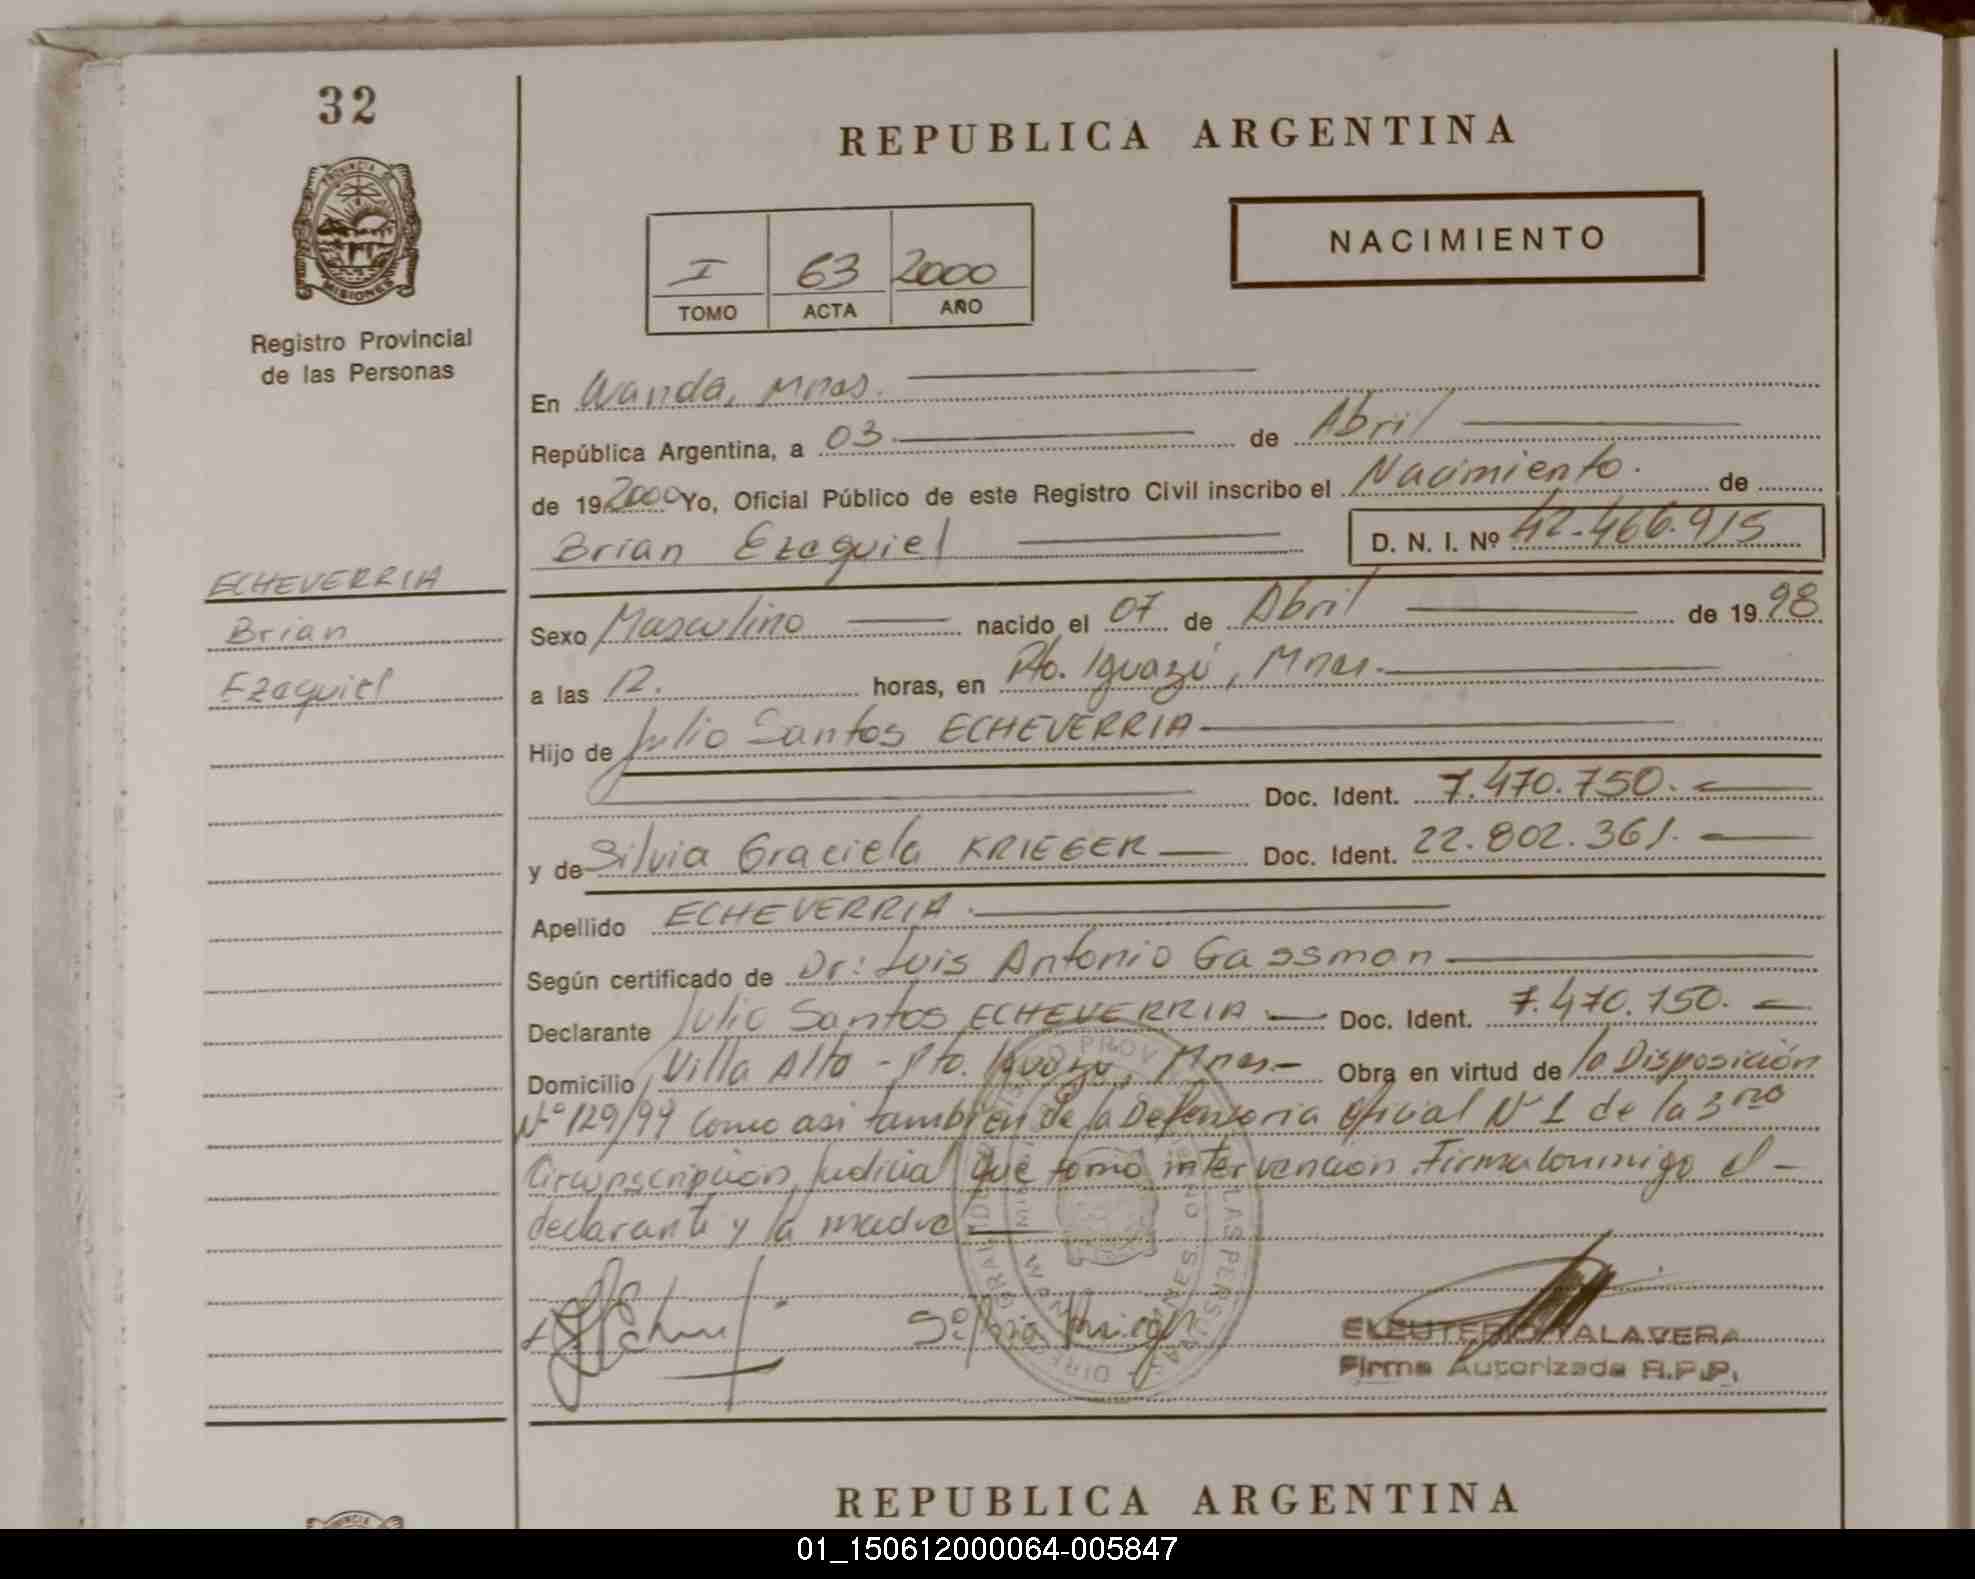 32
PROVINCIA DE
MISIONES
Registro Provincial
de las Personas
REPUBLICA ARGENTINA
I 63 2000
TOMO ACTA AÑO
NACIMIENTO
En Wanda, Mnes.
República Argentina, a 03 de Abril
de 19 2000 Yo, Oficial Público de este Registro Civil inscribo el Nacimiento. de
Brian Ezequiel D. N. I. Nº 42.466.915
ECHEVERRIA
Brian
Ezequiel
Sexo Masculino nacido el 07 de Abril de 19 98
a las 12. horas, en Pto. Iguazú, Mnes.
Hijo de Julio Santos ECHEVERRIA
Doc. Ident. 7.470.750.
y de Silvia Graciela KRIEGER Doc. Ident. 22.802.361.
Apellido ECHEVERRIA.
Según certificado de Dr: Luis Antonio Gassman
Declarante Julio Santos ECHEVERRIA Doc. Ident. 7.470.750.
Domicilio Villa Alta - Pto. Iguazú, Mnes. Obra en virtud de la Disposición
Nº 129/99 como asi tambien de la Defensoria Oficial Nº 1 de la 3ra
Circunscripción Judicial que tomó intervención. Firma conmigo el
declarante y la madre
ELEUTERIO TALAVERA
Firma Autorizada R.P.P.
REPUBLICA ARGENTINA
01_150612000064-005847